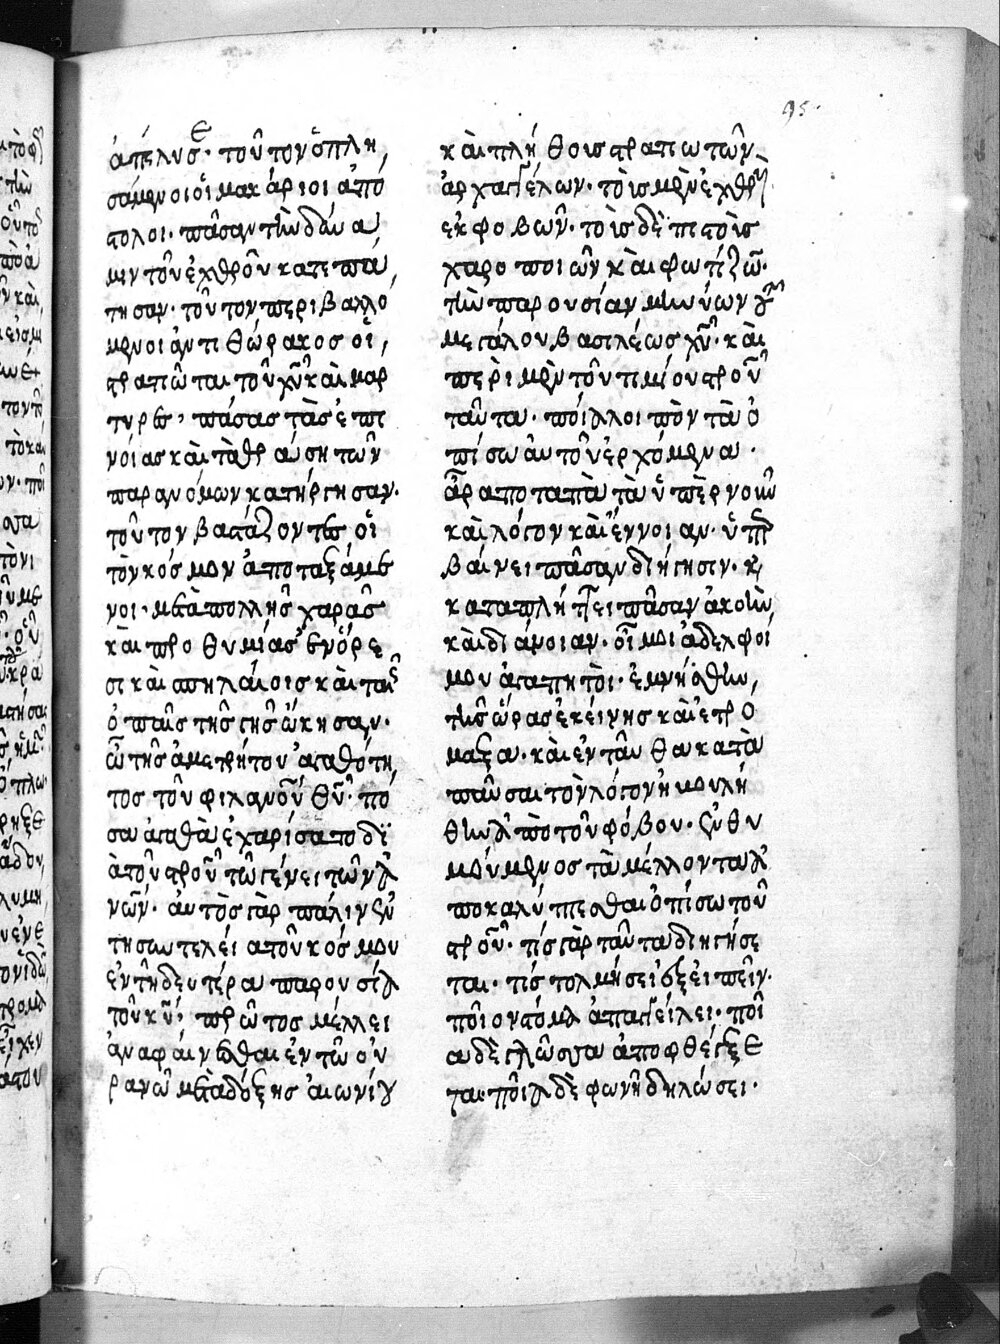 95·
ἀπέλυσε· τοῦτον ὁπλη
σάμενοι οἱ μακάριοι ἀπό
στολοι· πᾶσαν τὴν δύνα
μιν τοῦ ἐχθροῦ κατεπά
τησαν· τοῦτον περιβαλλό
μενοι ἀντὶ θώρακος οἱ
στρατιῶται τοῦ χυ̅ καὶ μάρ
τυρες, πάσας τὰς ἐπι
νοίας καὶ τὰ θράση τῶν
παρανόμων κατήργησαν·
τοῦτον βαστάζοντες οἱ
τὸν κόσμον ἀποταξάμε
νοι· μετὰ πολλῆς χαρᾶς
καὶ προθυμίας ἐν ὄρε
σι καὶ σπηλαίοις καὶ ταῖς
ὀπαῖς τῆς γῆς ᾤκησαν·
ὢ τῆς ἀμετρήτου ἀγαθότη
τος τοῦ φιλανου̅ θυ̅· πό
σα ἀγαθὰ ἐχαρίσατο δι
ὰ τοῦ στρου̅ τῶ γένει τῶν α
νων̅· αὐτὸς γὰρ πάλιν ἐν
τῆ συντελεία τοῦ κόσμου
ἐν τῆ δευτέρα παρουσία
τοῦ κυ̅· πρῶτος μέλλει
ἀναφαίνεσθαι ἐν τῶ οὐ
ρανῶ μετὰ δόξης αἰωνίου
καὶ πλήθοις στρατιωτῶν
ἀρχαγγέλων· τοὺς μὲν ἐχθροὺς
ἐκφοβῶν· τοῖς δὲ πιστοῖς
χαροποιῶν καὶ φωτίζων·
τὴν παρουσίαν μηνύων τοῦ
μεγάλου βασιλέως χυ̅· καὶ
περὶ μὲν τοῦ τιμίου στρου̅
ταῦτα· τὰ ὀ
πίσω αὐτοῦ ἐρχόμενα·
ἆρα ποταπὰ τὰ ὑπὲρ νοῦν
καὶ λόγον καὶ ἔννοιαν· ὑπερ
βαίνει πᾶσαν διήγησιν· κ
καταπλήττει πᾶσαν ἀκοὴν
καὶ διάνοιαν· οἴμοι ἀδελφοί
μου ἀγαπητοί· ἐμνήσθην
τῆς ὥρας ἐκείνης καὶ ἐτρό
μαξα· καὶ ἐνταῦθα κατα
παῦσαι τὸν λόγον ἠβουλή
θην ἀπὸ τοῦ φόβου· ἐνθυ
μούμενος τὰ μέλλοντα ἀ
ποκαλύπτεσθαι ὀπίσω τοῦ
στρου̅· τίς γὰρ ταῦτα διηγήσε
ται· τίς τολμήσει ἐξειπεῖν·
ποῖον στόμα ἀπαγγείλει· ποῖ
α δὲ γλῶσσα ἀποφθέγξε
ται· ποία δὲ φωνὴ δηλώσει·